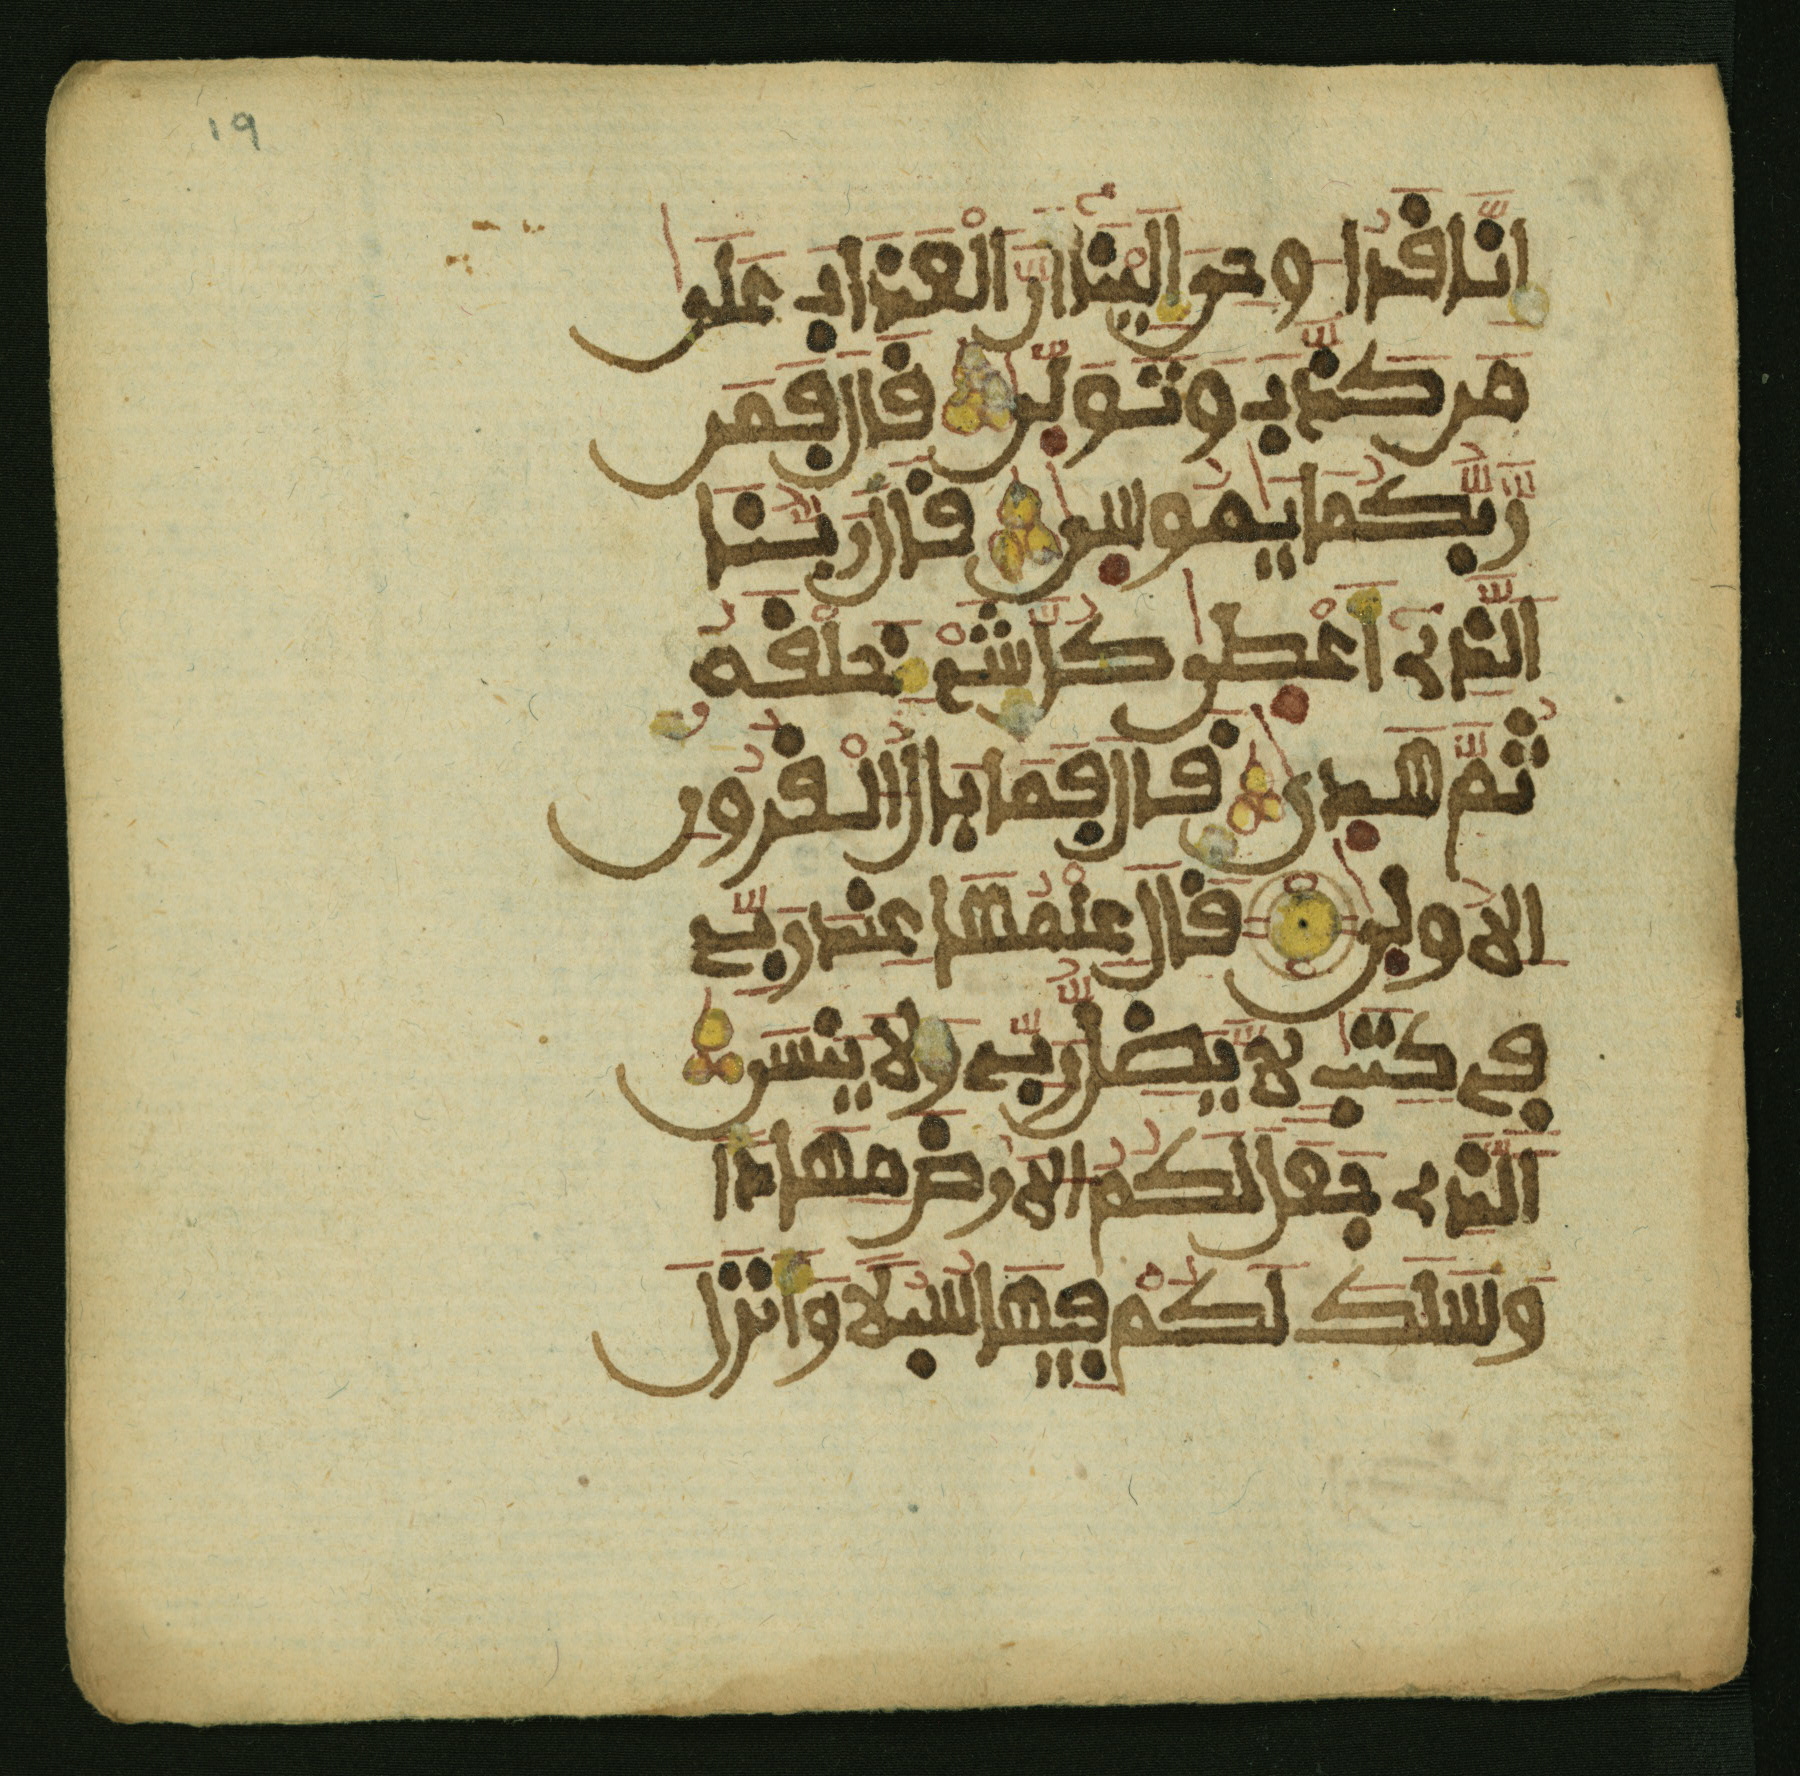 19
إنا قد اوحي إلينا أن العذاب على
من كذب وتولى قال فمن
ربكما يموسى قال ربنا
الذي أعطى كل شيء خلقه
ثم هدى قال فما بال القرون
الاولى قال علمها عند ربي
في كتب لا يضل ربي ولا ينسى
الذي جعل لكم الارض مهادا
وسلك لكم فيها سبلا وأنزل